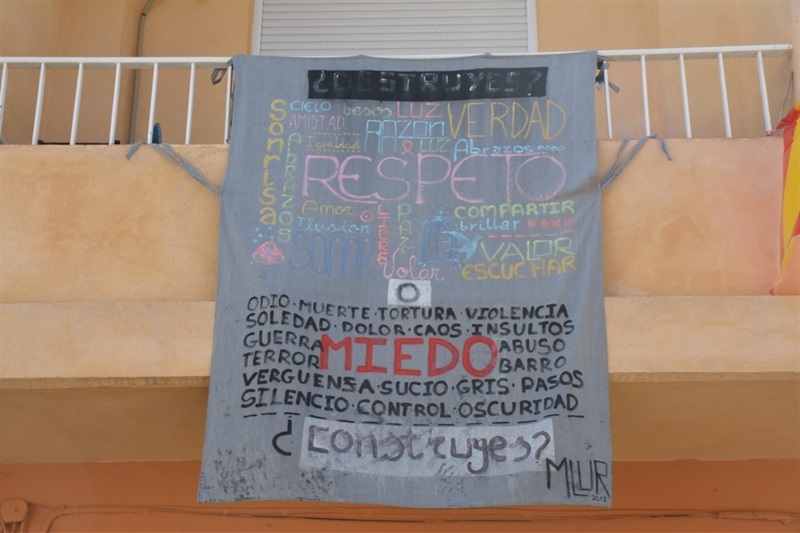 ¿DESTRUYES?
Sonrisa
CIELO besos LUZ VERDAD
AMISTAD RAZON
Igualdad LUZ Abrazos
ABRAZOS
RESPETO
Amor LIBRES PAZ COMPARTIR
Ilusion brillar
SOÑAR VALOR
Volar ESCUCHAR
O
ODIO · MUERTE · TORTURA · VIOLENCIA
SOLEDAD · DOLOR · CAOS · INSULTOS
GUERRA MIEDO ABUSO
TERROR BARRO
VERGUENSA · SUCIO · GRIS · PASOS
SILENCIO · CONTROL · OSCURIDAD
¿Construyes?
MLUR
2013